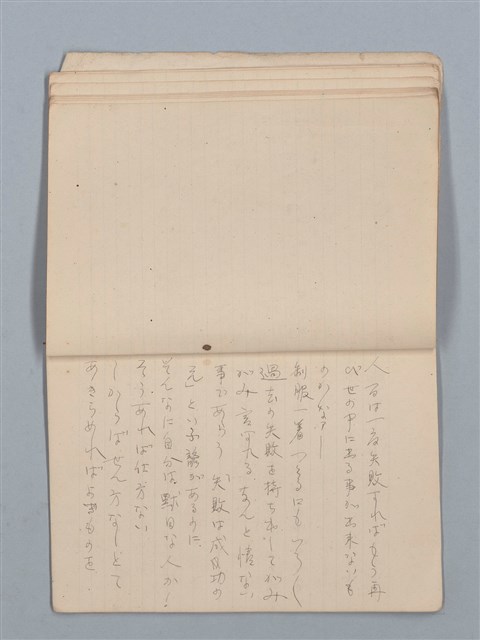 人間は一度失敗すればもう再
び世の中に出る事が出来ないも
のかなー
制服一着つくるにもいろいろ
過去の失敗を持ち出して
云われる なんと情ない
事であろう 失敗は成功の
元」といふ諺があるのに、
そんなに自分は駄目な人か!
そうあれば仕方ない
しからばせん方なしとて
あきらめればよきものを.